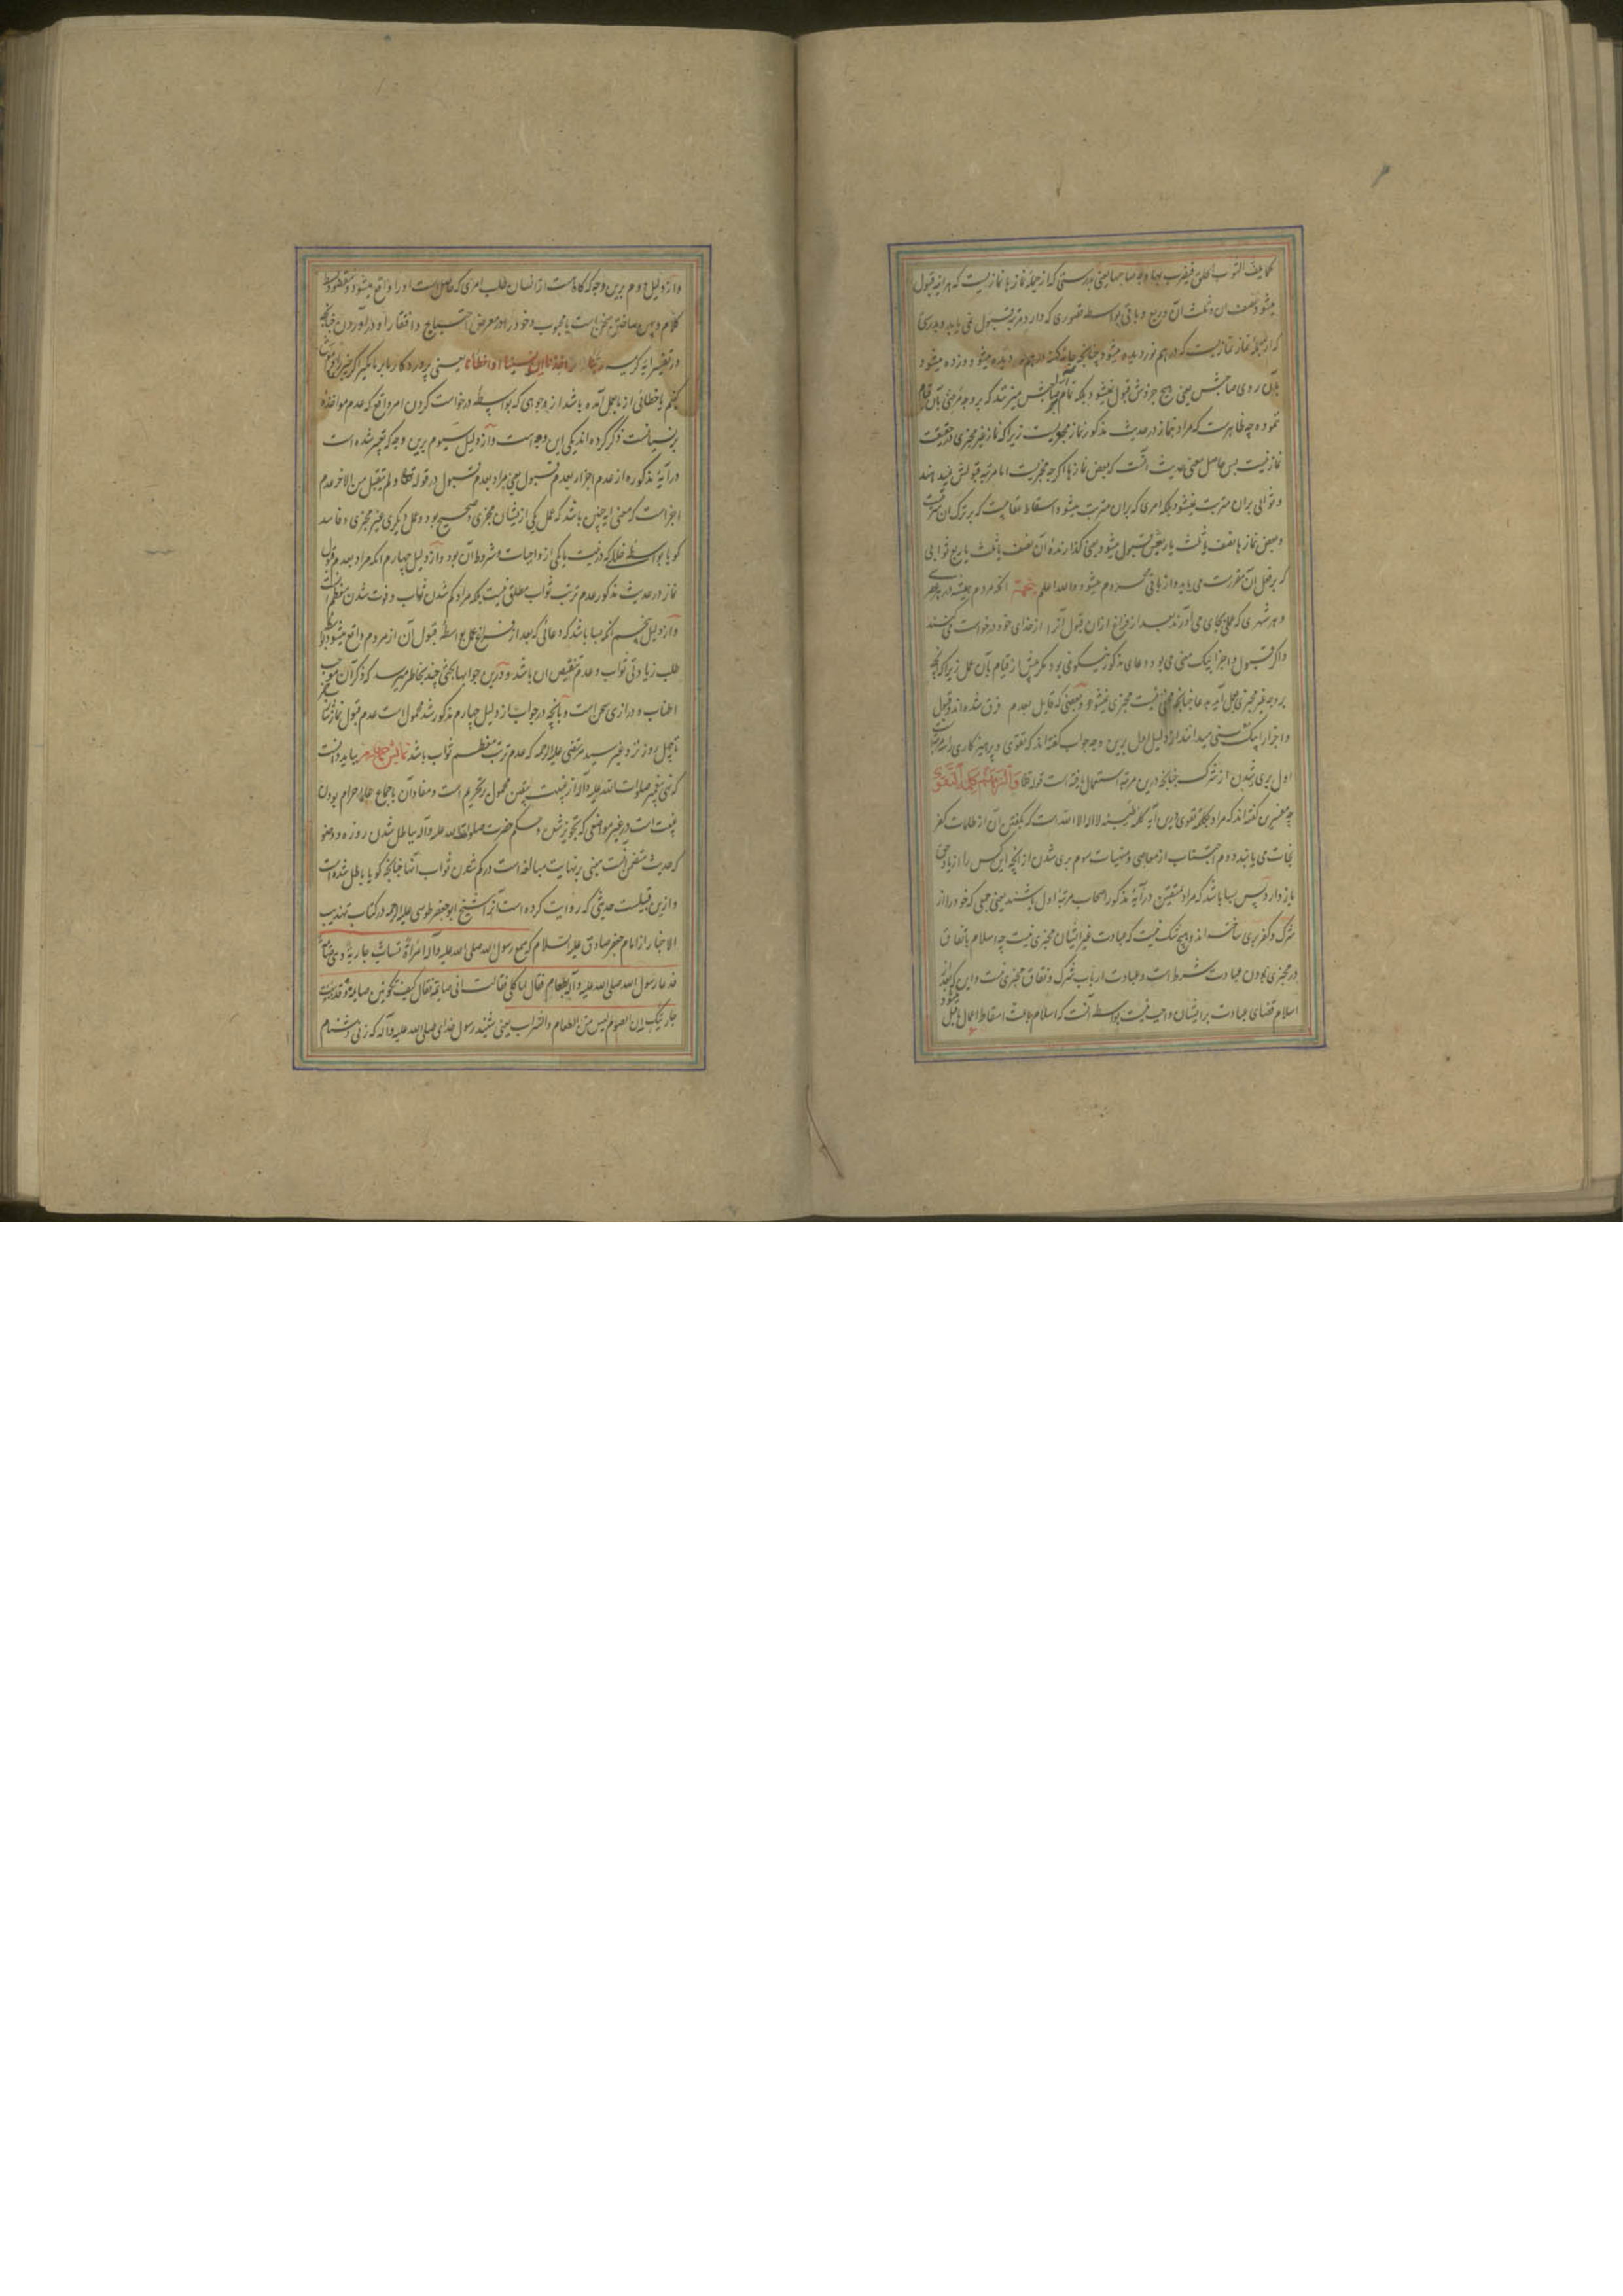 کما یلف الثوب الخلق فیضرب بها وجه صاحبها یعنی بدرستی که از جمله نمازها نمازیست که هر آینه قبول
میشود نصف آن و ثلث آن و ربع و باقی بواسطه قصوری که دارد مرتبه قبول نمی یابد و بدرستی
که از جمله نماز نمازیست که درهم نوردیده میشود چنانچه جامه کهنه درهم نوردیده میشود و زده میشود
بآن روی صاحبش یعنی هیچ جزوش قبول نمیشود بلکه
نموده چه ظاهرست که مراد بنماز در حدیث مذکور نماز مجزیست زیرا که نماز غیر مجزی در حقیقت
نماز نیست پس حاصل معنی حدیث آنست که بعض نمازها اگرچه مجزیست اما مرتبه قبولش نمیدهند
و ثوابی بران مترتب نمیشود بلکه امری که بران مترتب میشود اسقاط عقابیست که بر ترک آن
و بعض نماز یا نصف یا ثلث یا ربعش قبول میشود یعنی گذارنده آن نصف یا ثلث یا ربع ثوابی
که بر فعل آن مقررست می یابد و از باقی محروم میشود و الله اعلم پنجم آنکه مردم همیشه در هر عصری
و هر شهری که عملی بجای می آورند بعد از فراغ ازان قبول آنرا از خدای خود درخواست می کنند
و اگر قبول و اجزا بیک معنی می بود دعای مذکور نیکو نمی بود مگر پیش از قیام بآن عمل زیرا که آنچه
بر وجه غیر مجزی بعمل آید به دعا چنانچه مجزی نیست مجزی نمیشود و بعضی که قایل بعدم فرق شده اند و قبول
و اجزا را بیک معنی میدانند از دلیل اول برین وجه جواب گفته اند که تقوی و پرهیزکاری را سه مرتبه است
اول بری شدن از شرک چنانچه درین مرتبه استعمال یافته است قوله تعالی وَأَلْزَمَهُمْ كَلِمَةَ التَّقْوَى
چه مفسرین گفته اند که مراد بکلمه تقوی درین آیه کلمه طیبه لا اله الا الله است که بگفتن آن از ظلمات کفر
نجات می یابند دوم اجتناب از معاصی و منهیات سوم بری شدن از آنچه این کس را از یاد حق
باز دارد پس بسا باشد که مراد بمتقین در آیهٔ مذکور اصحاب مرتبهٔ اول باشند یعنی جمعی که خود را از
شرک و کفر بری ساخته اند و هیچ شک نیست که عبادت غیر ایشان مجزی نیست چه اسلام باتفاق
در مجزی بودن عبادت شرط است و عبادت ارباب شرک و نفاق مجزی نیست و این که بعد از
اسلام قضای عبادت بر ایشان واجب نیست بواسطه آنست که اسلام باعث اسقاط اعمال ماقبل میشود
و از دلیل دوم برین وجه که گاه هست از انسان طلب امری که حاصل است او را واقع میشود و مقصود بسط
کلام و پهن ساختن سخن است با محبوب و خود را در معرض احتیاج و افتقار او درآوردن چنانچه
در تفسیر آیه کریمه ربنا لا تؤاخذنا ان نسینا او اخطأنا یعنی پروردگارا بر ما مگیر اگر
کنیم یا خطائی از ما بعمل آمده باشد از وجوهی که بواسطه درخواست کردن امر واقع که عدم مواخذه
بر نسیانست ذکر کرده اند یکی این وجه است و از دلیل سیوم برین وجه که تعبیر شده است
در آیهٔ مذکوره از عدم اجزا بعدم قبول یعنی مراد بعدم قبول در قوله تعالی و لم یتقبل من الاخر عدم
اجزاست که معنی آیه چنین باشد که عمل یکی از ایشان مجزی و صحیح بود و عمل دیگری غیر مجزی و فاسد
گویا بواسطهٔ خللی که در نیت یا یکی از واجبات و شروط آن بود و از دلیل چهارم آنکه مراد بعدم قبول
نماز در حدیث مذکور عدم ترتب ثواب مطلق نیست بلکه مراد کم شدن ثواب و فوت شدن معظم آنست
و از دلیل پنجم آنکه بسا باشد که دعائی که بعد از فراغ عمل بواسطهٔ قبول آن از مردم واقع میشود
طلب زیادتی ثواب و عدم تنقیص آن باشد و درین جوابها بحثی چند بخاطر میرسد که ذکر آن موجب
اطناب و درازی سخن است و بآنچه در جواب از دلیل چهارم مذکور شد محمول است عدم قبول نماز
تا چهل روز نزد غیر سید مرتضی علیه الرحمه که عدم ترتب معظم ثواب باشد نمایش چهارم بباید دانست
که نهی پیغمبر صلوات الله علیه و آله از غیبت بیقین محمول بر تحریم است و مفاد آن باجماع علما حرام بودن
غیبت است در غیر مواضعی که تجویز شده و حکم حضرت صلوات الله علیه و آله بباطل شدن روزه و وضو
که حدیث متضمن آنست مبنی بر نهایت مبالغه است در کم شدن ثواب آنها چنانچه گویا باطل شده است
و ازین قبیلست حدیثی که روایت کرده است آنرا شیخ ابو جعفر طوسی علیه الرحمه در کتاب تهذیب
الاخبار از امام جعفر صادق علیه السلام که سمع رسول الله صلی الله علیه و آله امرأة تساب جاریة و هی صائمة
فدعا رسول الله صلی الله علیه و آله بطعام فقال لها کلی فقالت انی صایمة فقال کیف تکونین صایمة و قد سببت
جاریتک ان الصوم لیس من الطعام و الشراب یعنی شنید رسول خدای صلی الله علیه و آله که زنی دشنام